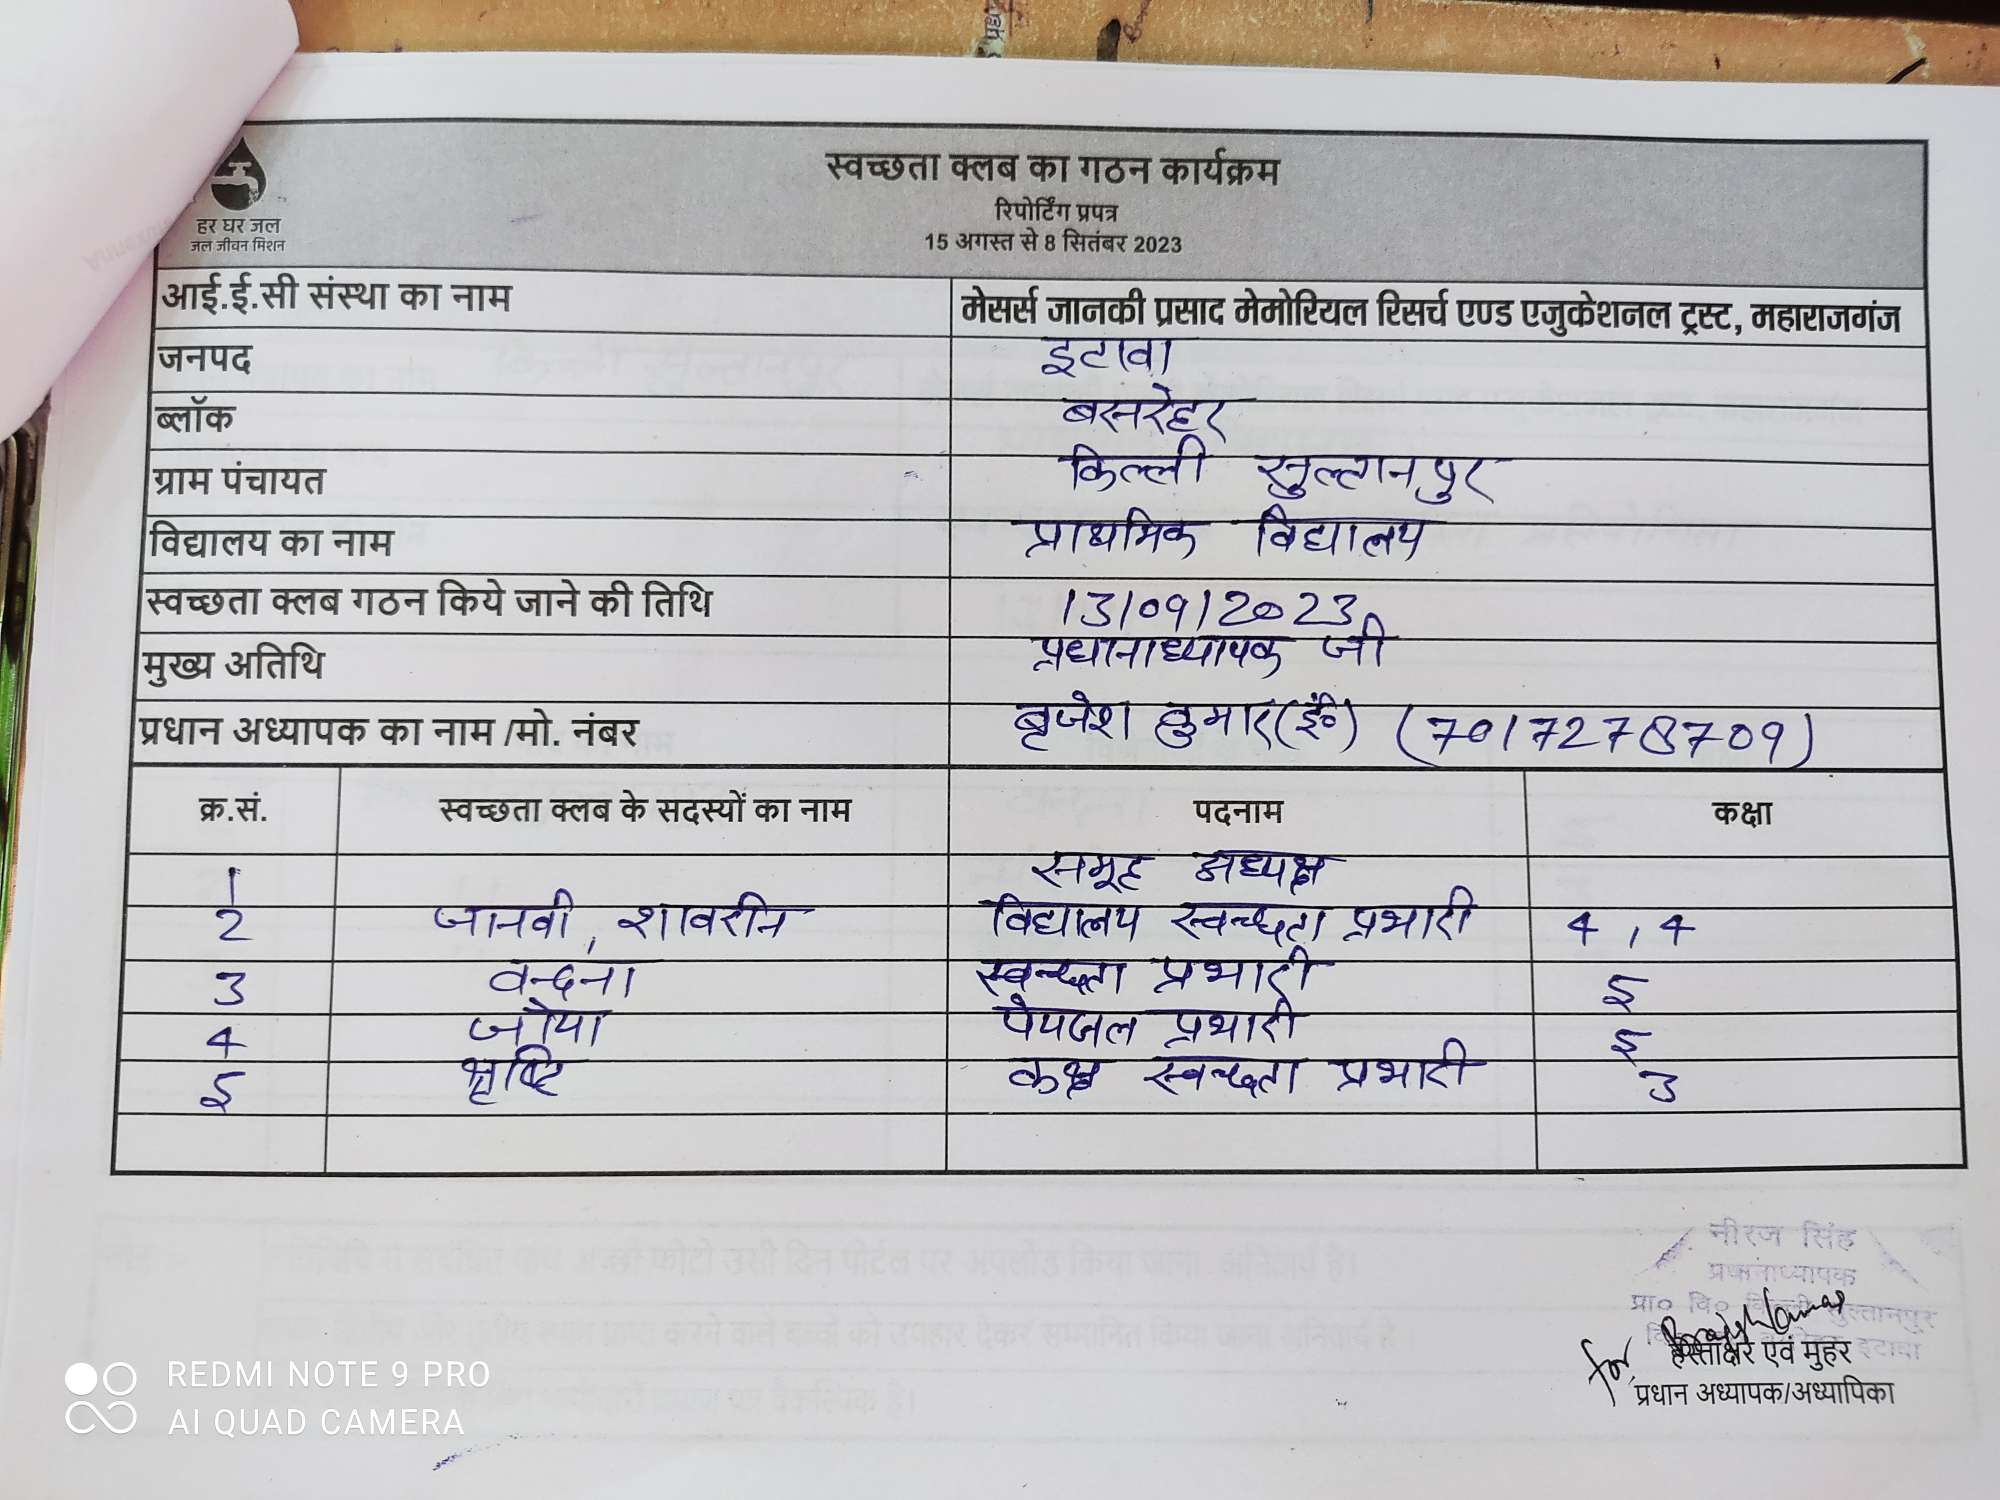 स्वच्छता क्लब का गठन कार्यक्रम
रिपोर्टिंग प्रपत्र
15 अगस्त से 8 सितंबर 2023
हर घर जल
जल जीवन मिशन
आई.ई.सी संस्था का नाम मेसर्स जानकी प्रसाद मेमोरियल रिसर्च एण्ड एजुकेशनल ट्रस्ट, महाराजगंज
जनपद इटावा
ब्लॉक बसरेहर
ग्राम पंचायत किल्ली सुल्तानपुर
विद्यालय का नाम प्राथमिक विद्यालय
स्वच्छता क्लब गठन किये जाने की तिथि 13/09/2023
मुख्य अतिथि प्रधानाध्यापक जी
प्रधान अध्यापक का नाम /मो. नंबर बृजेश कुमार (इं०) (7017278709)
क्र.सं. स्वच्छता क्लब के सदस्यों का नाम पदनाम कक्षा
1 समूह अध्यक्ष
2 जानवी, शावरीन विद्यालय स्वच्छता प्रभारी 4, 4
3 वन्दना स्वच्छता प्रभारी 5
4 जोया पेयजल प्रभारी 5
5 कक्ष स्वच्छता प्रभारी 3
नीरज सिंह
प्रधानाध्यापक
प्रा० वि० किल्ली सुल्तानपुर
इटावा
for
हस्ताक्षर एवं मुहर
प्रधान अध्यापक/अध्यापिका
REDMI NOTE 9 PRO
AI QUAD CAMERA